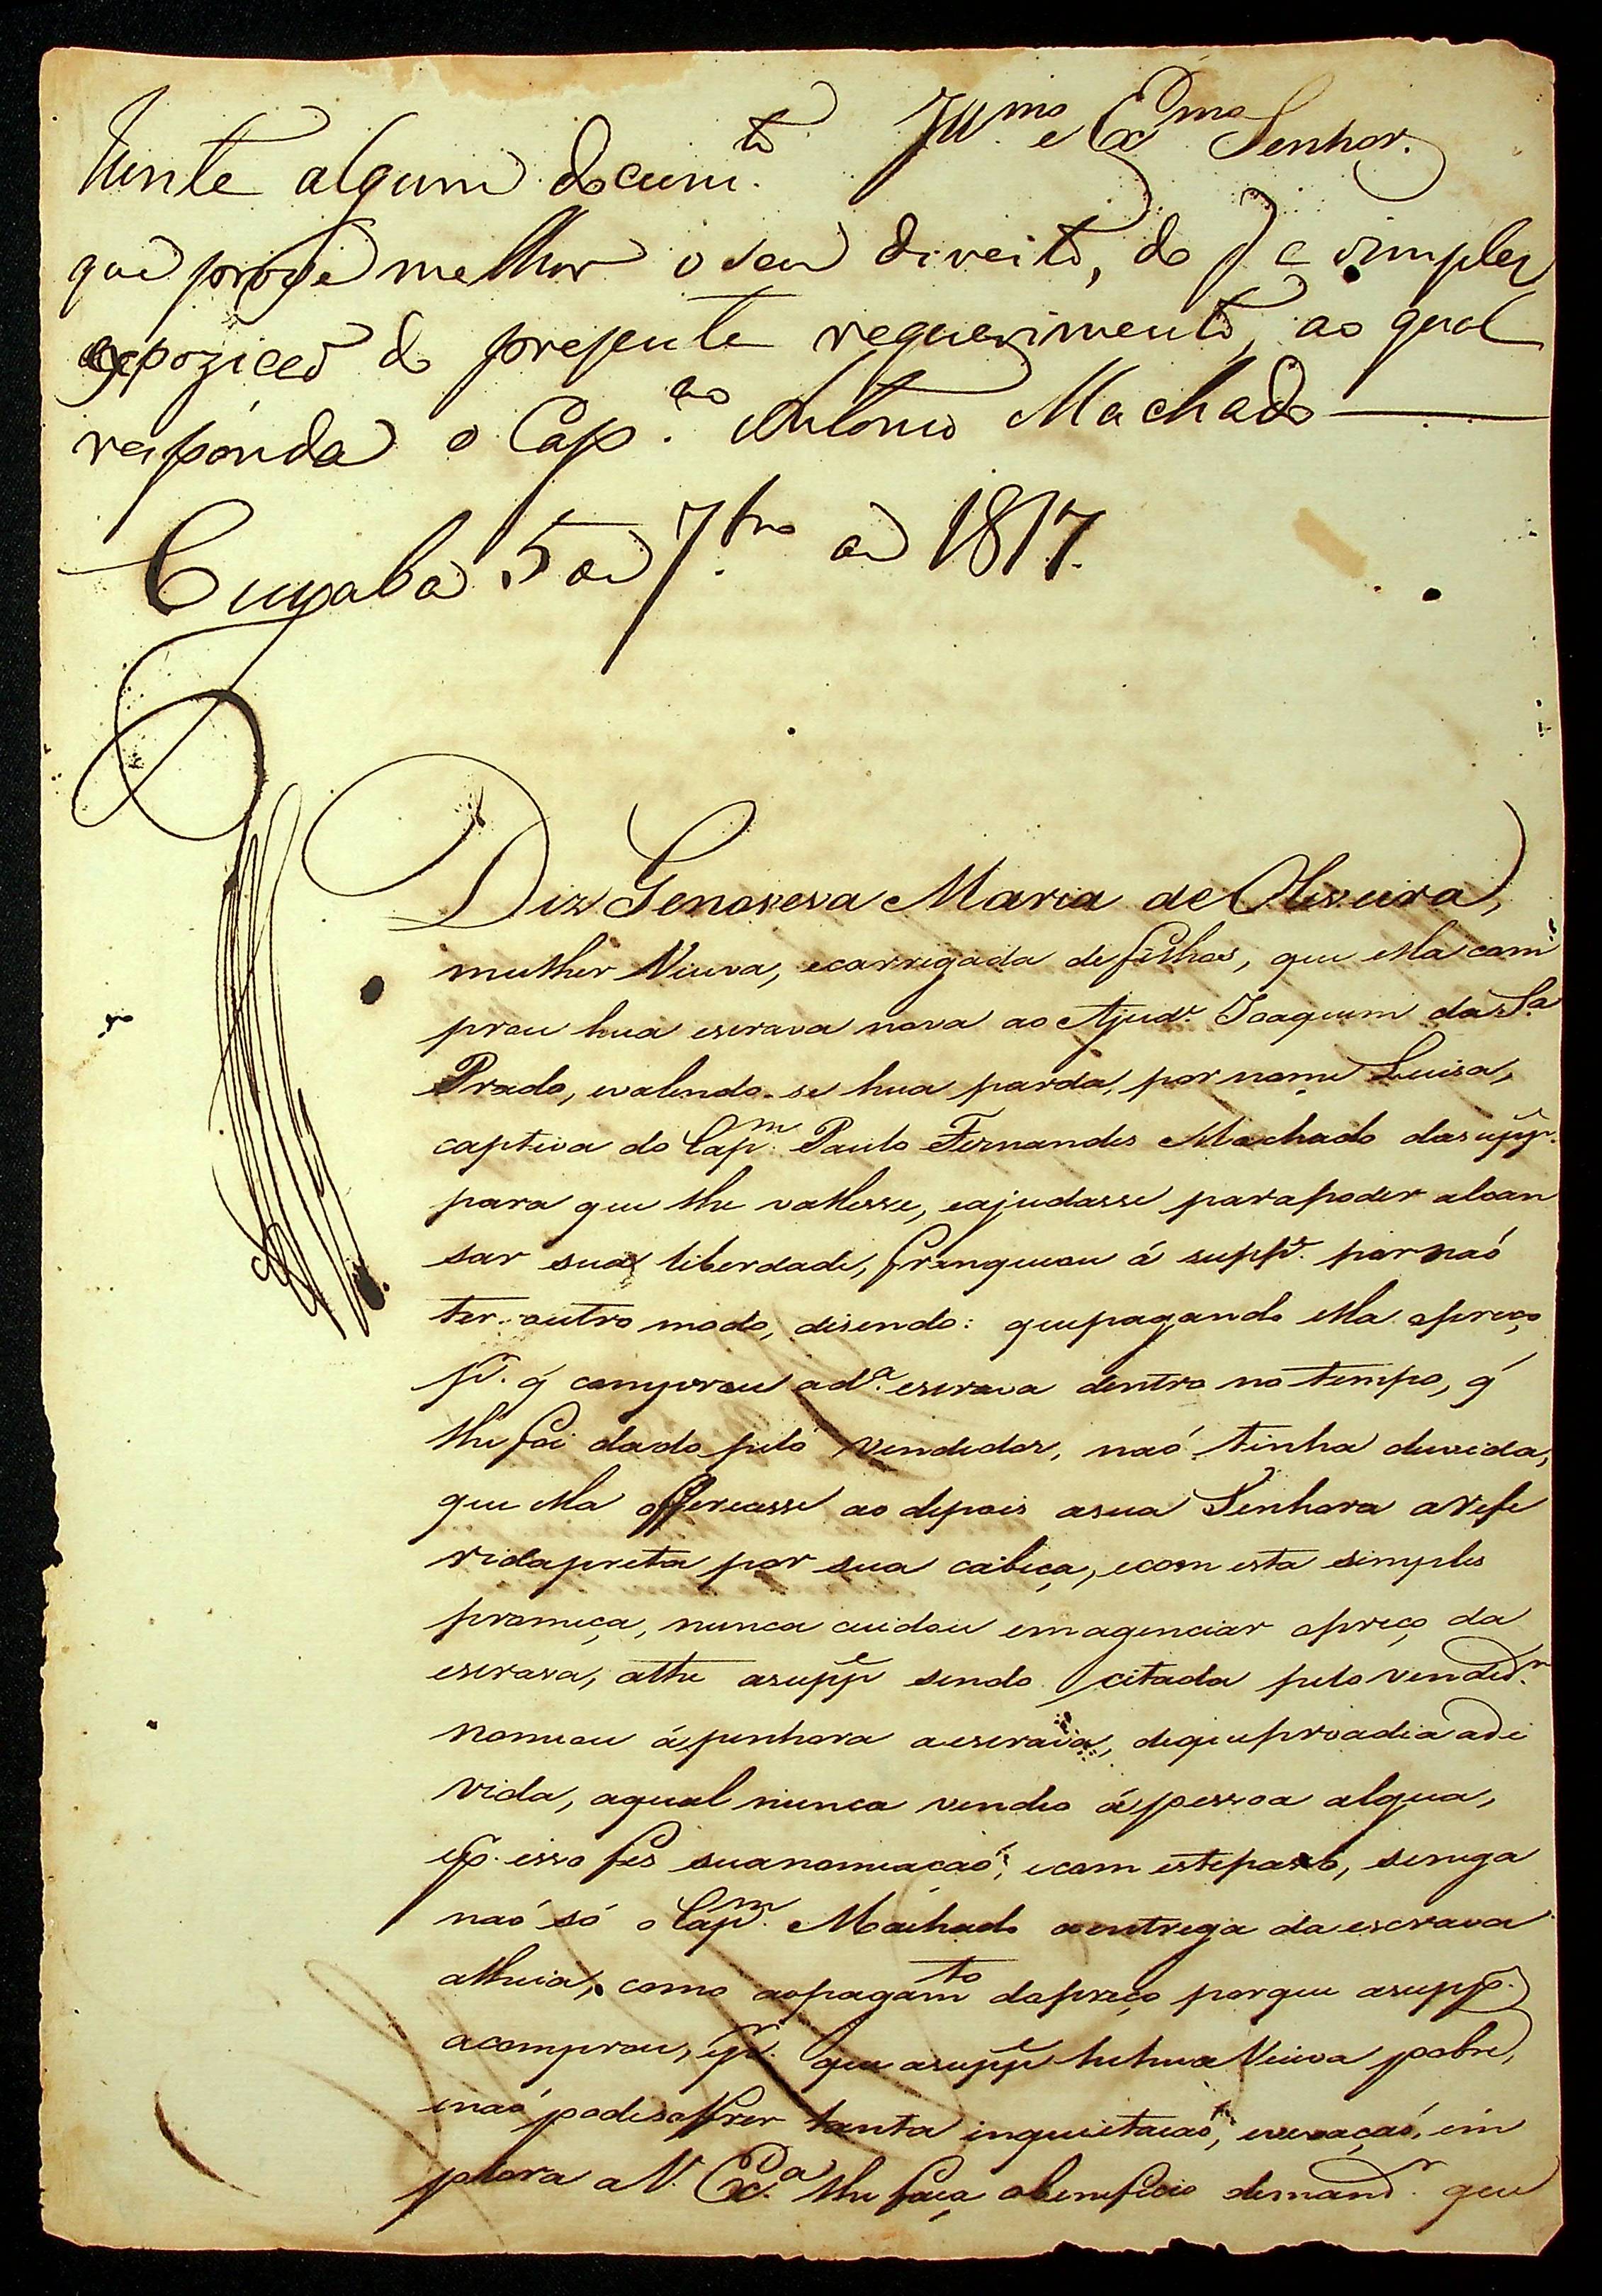 Ill.mo e Ex.mo Senhor.
Junte algum docum.to
que prove melhor o seu direito, do q a simples
expozicaõ do prezente requerimento, ao qual
responda o Cap.am Antonio Machado
Cuyaba 5 de 7.bro de 1817.
Diz Genoveva Maria de Oliveira,
mulher Viuva, ecarregada defilhos, que ella com
prou hua escrava nova ao Ajud.e Joaquim da S.a
Prado, evalendo-se hua parda, por nome Luisa,
captiva do Cap.m Paulo Fernandes Machado dasupp.e
para que lhe vallesse, eajudasse parapoder alcan
sar sua liberdade, franqueou á supp.e pornaõ
ter outro modo, disendo: quepagando ella opreço
p.r q comprou ad.a escrava dentro no tempo, q
lhefoi dado pelo vendedor, naõ tinha duvida,
que ella offrecesse ao depois asua Senhora arefe
ridapreta por sua cabeça, ecom esta simples
promeça, nunca cuidou emagenciar opreço da
escrava, athe asupp.e sendo citada pelo vended.r
nomeou ápenhora aescrava, dequeprocedia adi
vida, aqual nunca vendeo ápessoa algua,
ep. isso fes suanomiaçaõ; ecom estepasso, senega
naõ só o Cap.m Machado aentrega da escrava
alheia, como aopagam.to dopreço porque asupp.e
acomprou, ep.r que asupp.e hehua Viuva pobre,
enaõ podesoffrer tanta inquietacaõ, evexaçaõ, im
plora aV. Ex.a lhe faça obeneficio demand.r que